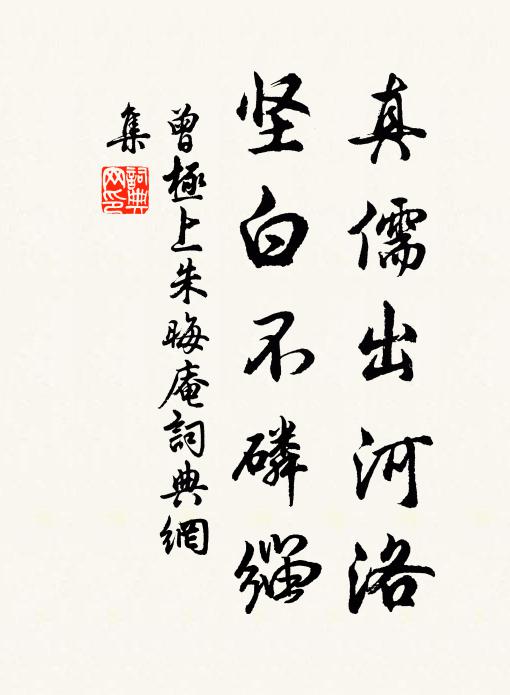 真儒出河洛
坚白不磷缁
曾極上朱晦庵詞典網
集
詞典
网印